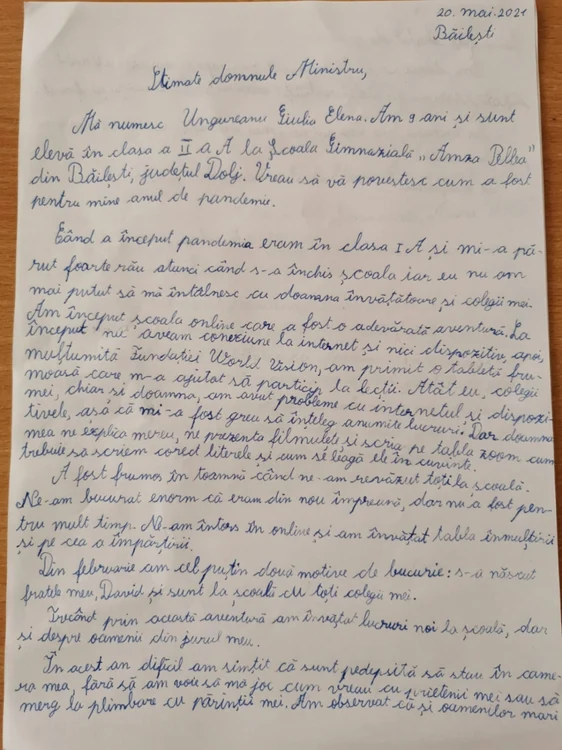 20. mai. 2021
Băilești
Stimate domnule Ministru,
Mă numesc Ungureanu Giulia Elena. Am 9 ani și sunt
elevă în clasa a II a A la Școala Gimnazială „Amza Pellea”
din Băilești, județul Dolj. Vreau să vă povestesc cum a fost
pentru mine anul de pandemie.
Când a început pandemia eram în clasa I A și mi-a pă-
rut foarte rău atunci când s-a închis școala iar eu nu am
mai putut să mă întâlnesc cu doamna învățătoare și colegii mei.
Am început școala online care a fost o adevărată aventură. La
început nu aveam conexiune la internet și nici dispozitiv, apoi,
mulțumită Fundației World Vision, am primit o tabletă fru-
moasă care m-a ajutat să particip la lecții. Atât eu, colegii
mei, chiar și doamna, am avut probleme cu internetul și dispozi-
tivele, așa că mi-a fost greu să înțeleg anumite lucruri. Dar doamna
mea ne explica mereu, ne prezenta filmulețe și scria pe tabla zoom cum
trebuie să scriem corect literele și cum se leagă ele în cuvinte.
A fost frumos în toamnă când ne-am revăzut toți la școală.
Ne-am bucurat enorm că eram din nou împreună, dar nu a fost pen-
tru mult timp. Ne-am întors în online și am învățat tabla înmulțirii
și pe cea a împărțirii.
Din februarie am cel puțin două motive de bucurie: s-a născut
fratele meu, David și sunt la școală cu toți colegii mei.
Trecând prin această aventură am învățat lucruri noi la școală, dar
și despre oamenii din jurul meu.
În acest an dificil am simțit că sunt pedepsită să stau în came-
ra mea, fără să am voie să mă joc cum vreau cu prietenii mei sau să
merg la plimbare cu părinții mei. Am observat că și oamenilor mari